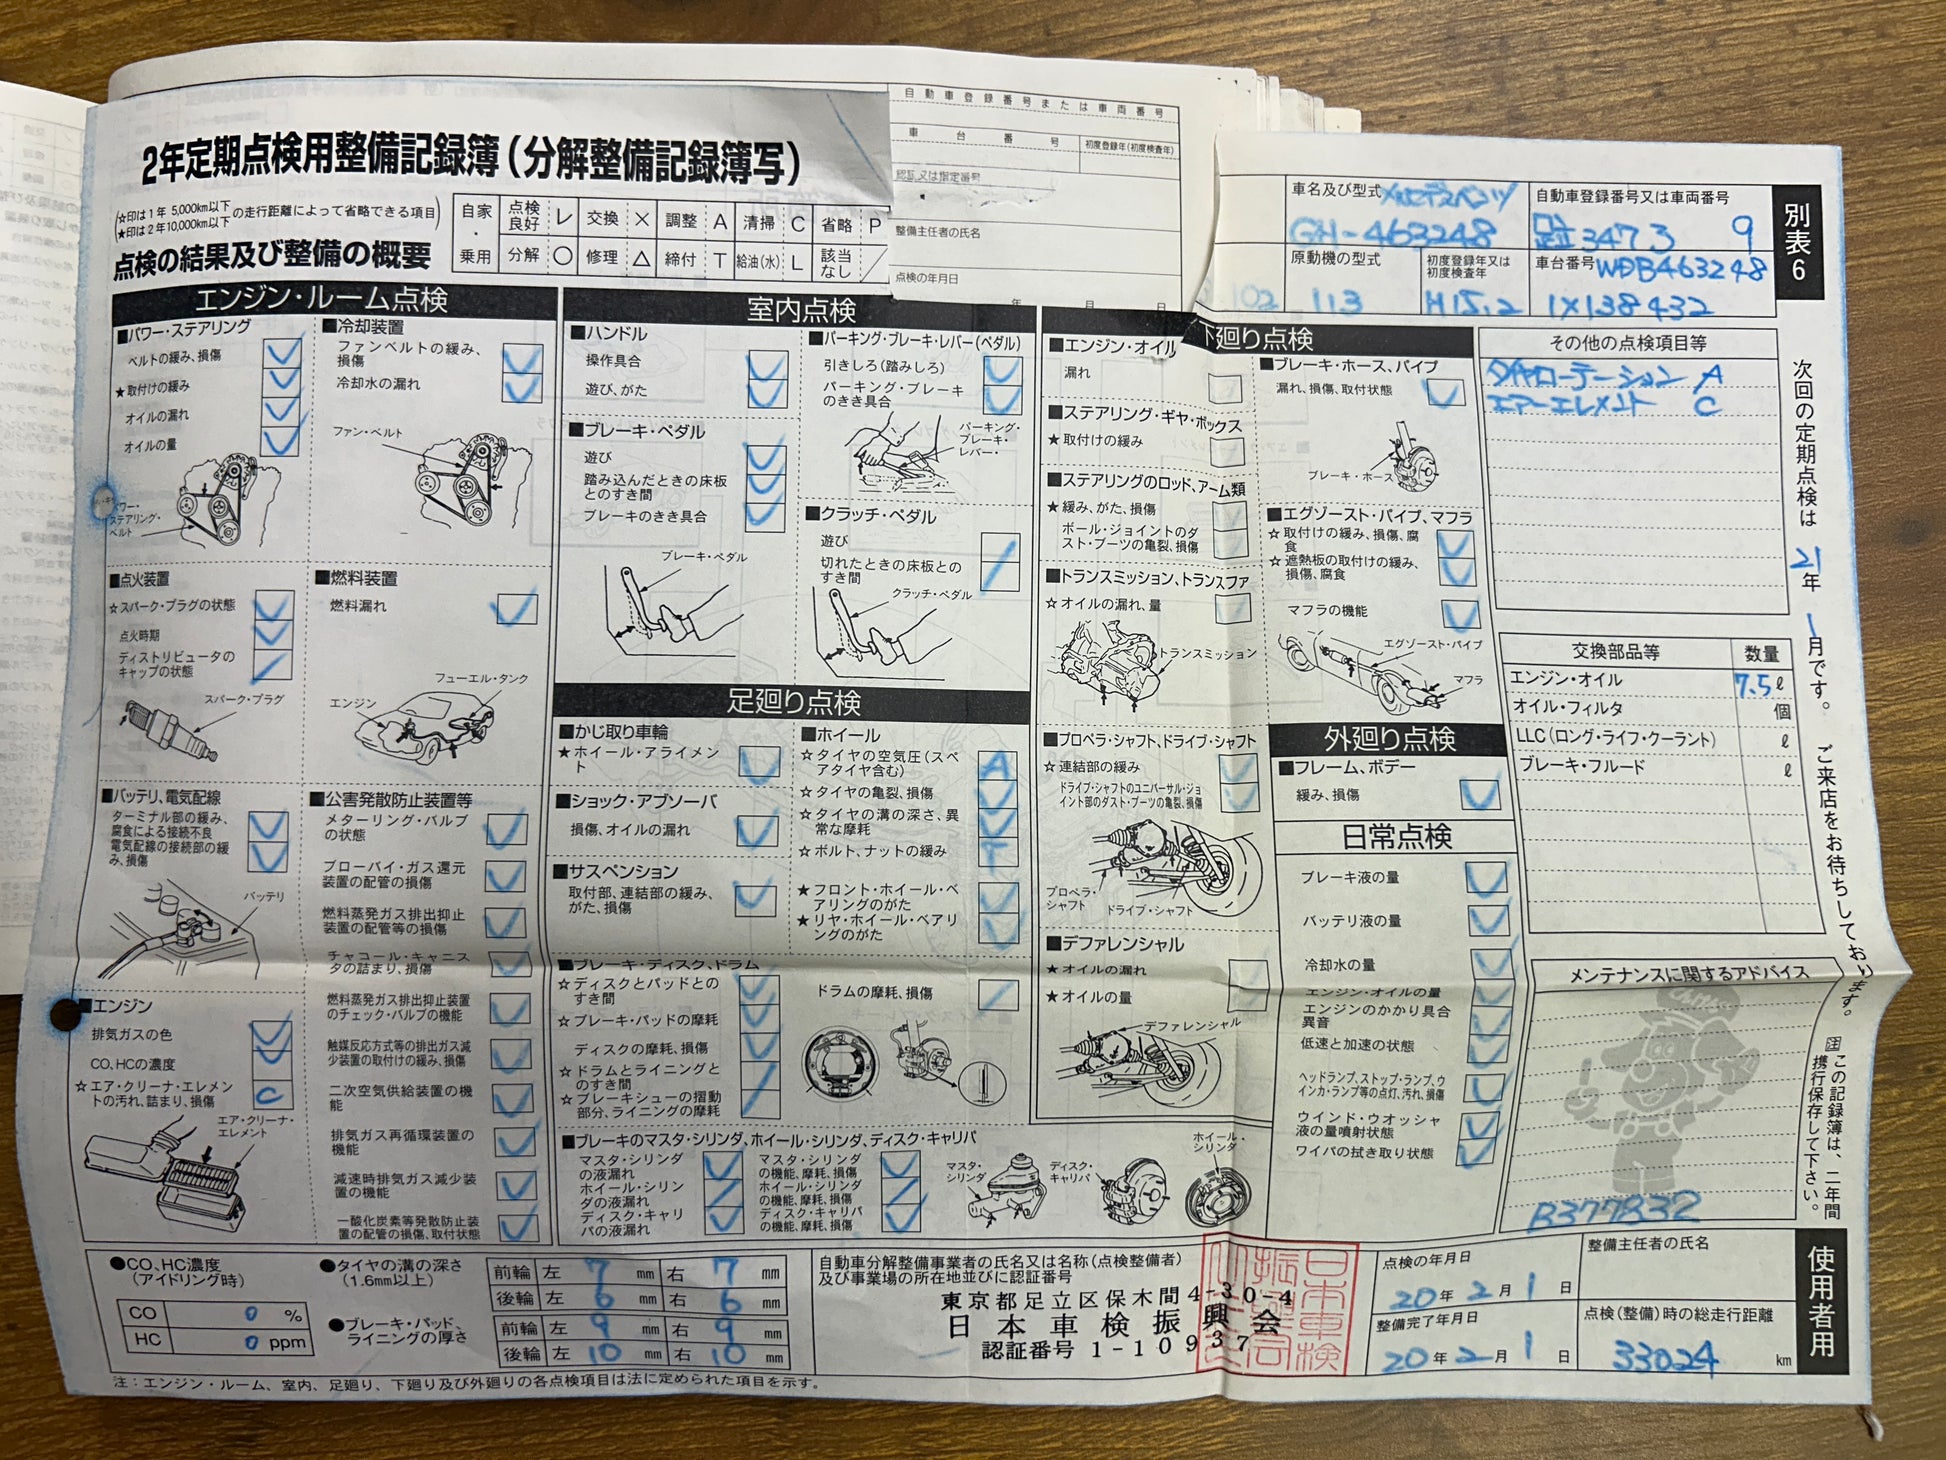 2年定期点検用整備記録簿(分解整備記録簿写)
☆印は1年 5,000km以下
★印は2年10,000km以下
の走行距離によって省略できる項目
点検の結果及び整備の概要
自家・乗用
点検良好 レ 交換 × 調整 A 清掃 C 省略 P
分解 ○ 修理 △ 締付 T 給油(水) L 該当なし ／
自動車登録番号または車両番号
車台番号
初度登録年(初度検査年)
認証又は指定番号
整備主任者の氏名
点検の年月日
年 月 日
車名及び型式 メルセデスベンツ
GH-463248
自動車登録番号又は車両番号
347 3 9
原動機の型式
113
初度登録年又は初度検査年
H15.2
車台番号 WDB463248
1X138432
別表6
エンジン・ルーム点検
■パワー・ステアリング
ベルトの緩み、損傷
★取付けの緩み
オイルの漏れ
オイルの量
パワー・ステアリング・ベルト
■冷却装置
ファンベルトの緩み、損傷
冷却水の漏れ
ファン・ベルト
■点火装置
☆スパーク・プラグの状態
点火時期
ディストリビュータのキャップの状態
スパーク・プラグ
■燃料装置
燃料漏れ
フューエル・タンク
エンジン
■バッテリ、電気配線
ターミナル部の緩み、腐食による接続不良
電気配線の接続部の緩み、損傷
バッテリ
■公害発散防止装置等
メターリング・バルブの状態
ブローバイ・ガス還元装置の配管の損傷
燃料蒸発ガス排出抑止装置の配管等の損傷
チャコール・キャニスタの詰まり、損傷
燃料蒸発ガス排出抑止装置のチェック・バルブの機能
触媒反応方式等の排出ガス減少装置の取付けの緩み、損傷
二次空気供給装置の機能
排気ガス再循環装置の機能
減速時排気ガス減少装置の機能
一酸化炭素等発散防止装置の配管の損傷、取付状態
■エンジン
排気ガスの色
CO、HCの濃度
☆エア・クリーナ・エレメントの汚れ、詰まり、損傷 C
エア・クリーナ・エレメント
室内点検
■ハンドル
操作具合
遊び、がた
■ブレーキ・ペダル
遊び
踏み込んだときの床板とのすき間
ブレーキのきき具合
ブレーキ・ペダル
■パーキング・ブレーキ・レバー(ペダル)
引きしろ(踏みしろ)
パーキング・ブレーキのきき具合
パーキング・ブレーキ・レバー・
■クラッチ・ペダル
遊び
切れたときの床板とのすき間
クラッチ・ペダル
足廻り点検
■かじ取り車輪
★ホイール・アライメント
■ショック・アブソーバ
損傷、オイルの漏れ
■サスペンション
取付部、連結部の緩み、がた、損傷
■ホイール
☆タイヤの空気圧(スペアタイヤ含む) A
☆タイヤの亀裂、損傷
☆タイヤの溝の深さ、異常な摩耗
☆ボルト、ナットの緩み T
★フロント・ホイール・ベアリングのがた
★リヤ・ホイール・ベアリングのがた
■ブレーキ・ディスク、ドラム
☆ディスクとパッドとのすき間
☆ブレーキ・パッドの摩耗
ディスクの摩耗、損傷
☆ドラムとライニングとのすき間
☆ブレーキシューの摺動部分、ライニングの摩耗
ドラムの摩耗、損傷
■ブレーキのマスタ・シリンダ、ホイール・シリンダ、ディスク・キャリパ
マスタ・シリンダの液漏れ
ホイール・シリンダの液漏れ
ディスク・キャリパの液漏れ
マスタ・シリンダの機能、摩耗、損傷
ホイール・シリンダの機能、摩耗、損傷
ディスク・キャリパの機能、摩耗、損傷
マスタ・シリンダ
ディスク・キャリパ
ホイール・シリンダ
下廻り点検
■エンジン・オイル
漏れ
■ステアリング・ギヤ・ボックス
★取付けの緩み
■ステアリングのロッド、アーム類
★緩み、がた、損傷
ボール・ジョイントのダスト・ブーツの亀裂、損傷
■トランスミッション、トランスファ
☆オイルの漏れ、量
トランスミッション
■プロペラ・シャフト、ドライブ・シャフト
☆連結部の緩み
ドライブ・シャフトのユニバーサル・ジョイント部のダスト・ブーツの亀裂、損傷
プロペラ・シャフト
ドライブ・シャフト
■デファレンシャル
★オイルの漏れ
★オイルの量
デファレンシャル
■ブレーキ・ホース、パイプ
漏れ、損傷、取付状態
ブレーキ・ホース
■エグゾースト・パイプ、マフラ
☆取付けの緩み、損傷、腐食
☆遮熱板の取付けの緩み、損傷、腐食
マフラの機能
エグゾースト・パイプ
マフラ
外廻り点検
■フレーム、ボデー
緩み、損傷
日常点検
ブレーキ液の量
バッテリ液の量
冷却水の量
エンジン・オイルの量
エンジンのかかり具合異音
低速と加速の状態
ヘッドランプ、ストップ・ランプ、ウインカ・ランプ等の点灯、汚れ、損傷
ウインド・ウオッシャ液の量噴射状態
ワイパの拭き取り状態
その他の点検項目等
タイヤローテーション A
エアーエレメント C
交換部品等 数量
エンジン・オイル 7.5ℓ
オイル・フィルタ 個
LLC(ロング・ライフ・クーラント) ℓ
ブレーキ・フルード ℓ
メンテナンスに関するアドバイス
B377832
次回の定期点検は21年1月です。ご来店をお待ちしております。
注 この記録簿は、二年間携行保存して下さい。
●CO、HC濃度(アイドリング時)
CO 0 %
HC 0 ppm
●タイヤの溝の深さ(1.6mm以上)
前輪 左 7 mm 右 7 mm
後輪 左 6 mm 右 6 mm
●ブレーキ・パッド、ライニングの厚さ
前輪 左 9 mm 右 9 mm
後輪 左 10 mm 右 10 mm
自動車分解整備事業者の氏名又は名称(点検整備者)及び事業場の所在地並びに認証番号
東京都足立区保木間4-30-4
日本車検振興会
認証番号 1-10937
点検の年月日
20年2月1日
整備完了年月日
20年2月1日
整備主任者の氏名
点検(整備)時の総走行距離
33024 km
使用者用
注：エンジン・ルーム、室内、足廻り、下廻り及び外廻りの各点検項目は法に定められた項目を示す。